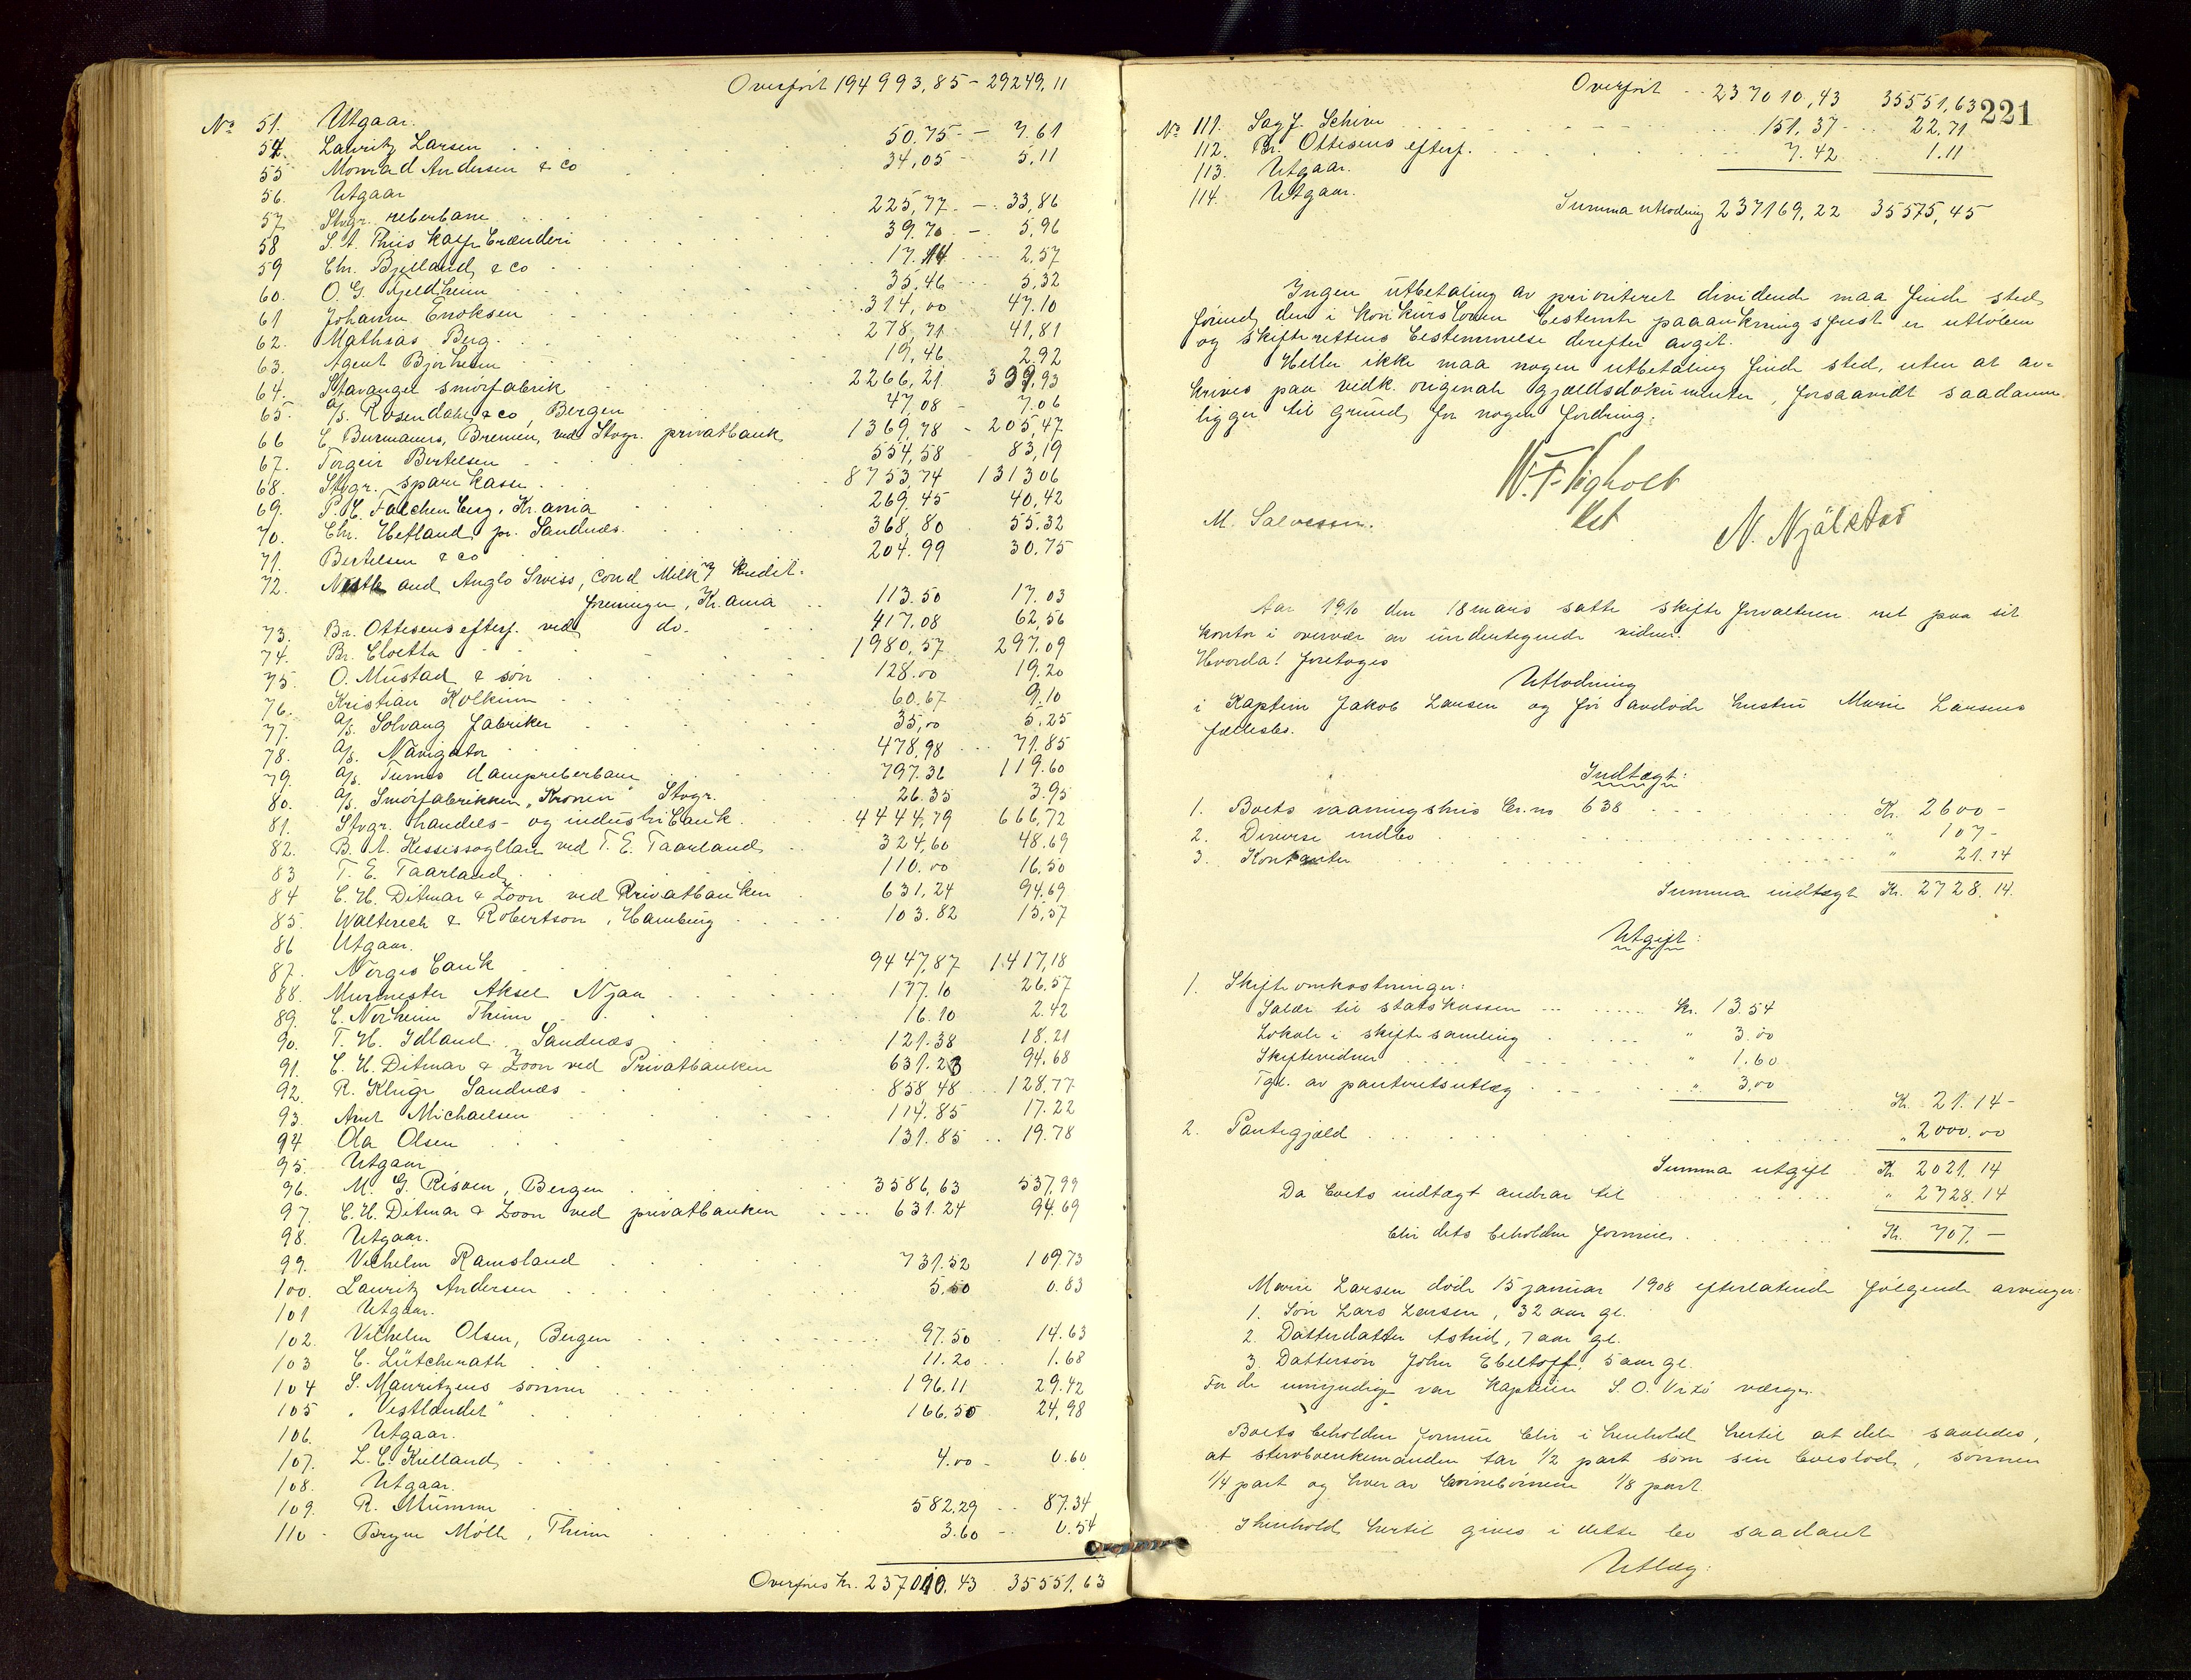 Overført 194993,85 – 29249,11
No 51. Utgaar.
54. Lauritz Larsen 50.75 – 7.61
55 Monrad Andersen & co 34,05 – 5,11
56. Utgaar
57. Stvgr. reberbane 225,77. – 33,86
58 S. A. Thiis kaffebrænderi 39.70 – 5,96
59 Chr. Bjelland & co 17.14 2.57
60. O. G. Fjeldheim 35,46 5,32
61 Johanne Enoksen 314,00 47.10
62. Mathias Berg 278,71 41,81
63. Agent Bjørheim 19,46 2.92
64. Stavanger smørfabrik 2266,21 339,93
65. A/s. Rosendahl & co, Bergen 47,08 – 7.06
66 C. Burmanns, Bremen, ved Stvgr. privatbank 1369,78 – 205,47
67. Torgeir Bertelsen 554,58 83,19
68. Stvgr. sparekasse 8753,74 131306
69. P. C. Falchenberg, Kr.ania 269,45 40,42
70. Chr. Hetland pr. Sandnæs 368,80 55.32
71. Bertelsen & co 204.99 30.75
72. Nestle and Anglo Swiss, Cond Milk & Kredit-
foreningen, Kr.ania 113.50 17.03
73. Br. Ottesens efterf. ved do. 417,08 62,56
74. Br. Cloetta 1980,57 297,09
75. O. Mustad & søn 128.00 19.20
76. Kristian Kolheim 60.67 9.10
77. A/s. Solvang fabriker 35,00 5.25
78. A/s. Navigator 478,98 71.85
79. A/s. Turnes dampreberbane 797.36 119.60
80. A/s. Smørfabrikken „Kronen" Stvgr. 26.35 3.95
81. Stvgr. handels- og industribank 4444,79 666,72
82. B. A. Kessissogllan ved T. E. Taarland 324,60 48.69
83 T. E. Taarland 110.00 16,50
84 C. H. Ditmar & Zoon ved Privatbanken 631,24 94,69
85. Walterech & Robertson, Hamburg 103.82 15,57
86 Utgaar.
87. Norges bank 9447,87 1417,18
88. Murmester Aksel Njaa 177.10 26.57
89. C. Norheim Thime 16.10 2.42
90. T. H. Idland, Sandnæs 121.38 18.21
91. C. H. Ditmar & Zoon ved Privatbanken 631.23 94.68
92. R. Kluge Sandnæs 858,48 128.77
93. Arnt Michaelsen 114.85 17.22
94 Ola Olsen 131.85 19.78
95. Utgaar
96. M. G. Risøen, Bergen 3586,63 537,99
97. C. H. Ditmar & Zoon ved privatbanken 631.24 94.69
98. Utgaar.
99. Vilhelm Ramsland 731.52 109.73
100. Lauritz Andersen 5.50 0.83
101 Utgaar.
102. Vilhelm Olsen, Bergen 97.50 14.63
103 C. Lütcherath 11.20 1.68
104 S. Mauritzens sønner 196.11 29.42
105 „Vestlandet" 166.50 24,98
106. Utgaar.
107. L. C. Kielland 4.00 – 0.60
108. Utgaar.
109. R. Mumme 582.29 87.34
110 – Bryne Mølle, Thime 3.60 – 0.54
Overføres Kr. 237010.43 35551,63
221
Overført 237010,43 35551,63
No 111. Sagf. Schive 151,37 22.71
112. Br. Ottesens efterf. 7.42 1.11
113. Utgaar.
114. Utgaar.
Summa utlodning 237169,22 35575,45
Ingen utbetaling av prioritert dividende maa finde sted
førend den i konkursloven bestemte paaankningsfrist er utløben
og skifterettens bestemmelse derefter avgit.
Heller ikke maa nogen utbetaling finde sted, uten at av-
skrives paa vedk. originale gjældsdokumenter, forsaavidt saadanne
ligger til grund for nogen fordring.
M. Salvesen.
N. Njålstad
Aar 1910 den 18 mars satte skifteforvalteren ret paa sit
kontor i overvær av undertegnede vidner.
Hvorda! foretoges
Utlodning
i Kaptein Jakob Larsen og før avdøde hustru Marie Larsens
fællesbo.
Indtægt:
1. Boets vaaningshus br.no 638 Kr. 2600 –
2. Diverse indbo " 107 –
3. Kontanter " 21.14
Summa indtægt Kr. 2728.14.
Utgift:
1. Skifteomkostninger:
Salær til statskassen Kr. 13.54
Lokale i skiftesamling " 3.00
Skiftevidner " 1.60
Tgl. av panteretsutlæg " 3,00
Kr. 21.14 –
2. Pantegjæld „ 2000.00
Summa utgift Kr. 2021.14
Da boets indtægt andrar til " 2728.14
blir dets beholdne formue Kr. 707. –
Marie Larsen døde 15 januar 1908 efterlatende følgende arvinger:
1. Søn Lars Larsen, 32 aar gl.
2. Datterdatter Astrid, 7 aar gl.
3. Dattersøn John Ebeltoft, 5 aar gl.
For de umyndige var kaptein S. O. Vixø værge.
Boets beholdne formue blir i henhold hertil at dele saaledes,
at stervboenkemanden tar 1/2 part som sin boeslod, sønnen
1/4 part og hver av børnebørnene 1/8 part.
I henhold hertil gives i dette bo saadant
Utlæg: